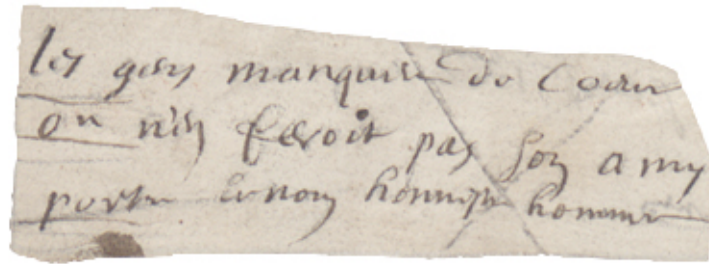 les gens manquir de Coeur
on n'en feroit pas son amy
porter le nom honneste homme